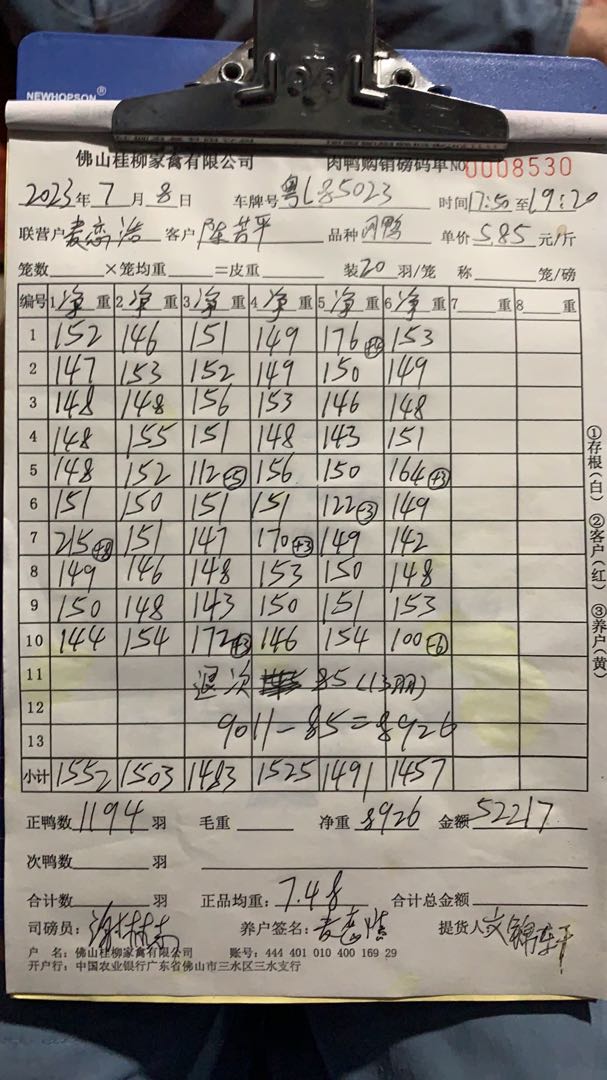 NEWHOPSON
佛山桂柳家禽有限公司 肉鸭购销磅码单 NO 0008530
2023年7月8日 车牌号 粤L85023 时间 17:50 至 19:20
联营户 麦恋浩 客户 陈芳平 品种 肉鸭 单价 5.85 元/斤
笼数 ×笼均重 =皮重 装 20 羽/笼 称 笼/磅
编号 1净重 2净重 3净重 4净重 5净重 6净重 7 重 8 重
1 152 146 151 149 176 153
2 147 153 152 149 150 149
3 148 148 156 153 146 148
4 148 155 151 148 143 151
5 148 152 112 -5 156 150 164 +3
6 151 150 151 151 122 -3 149
7 215 +8 151 147 170 +3 149 142
8 149 146 148 153 150 148
9 150 148 143 150 151 153
10 144 154 172 +3 146 154 100 -6
11 退次 85 (13羽)
12 9011-85=8926
13
小计 1552 1503 1483 1525 1491 1457
正鸭数 1194 羽 毛重 净重 8926 金额 52217
次鸭数 羽
合计数 羽 正品均重: 7.48 合计总金额
司磅员: 养户签名: 提货人
户 名: 佛山桂柳家禽有限公司 账号: 444 401 010 400 169 29
开户行: 中国农业银行广东省佛山市三水区三水支行
①存根(白) ②客户(红) ③养户(黄)